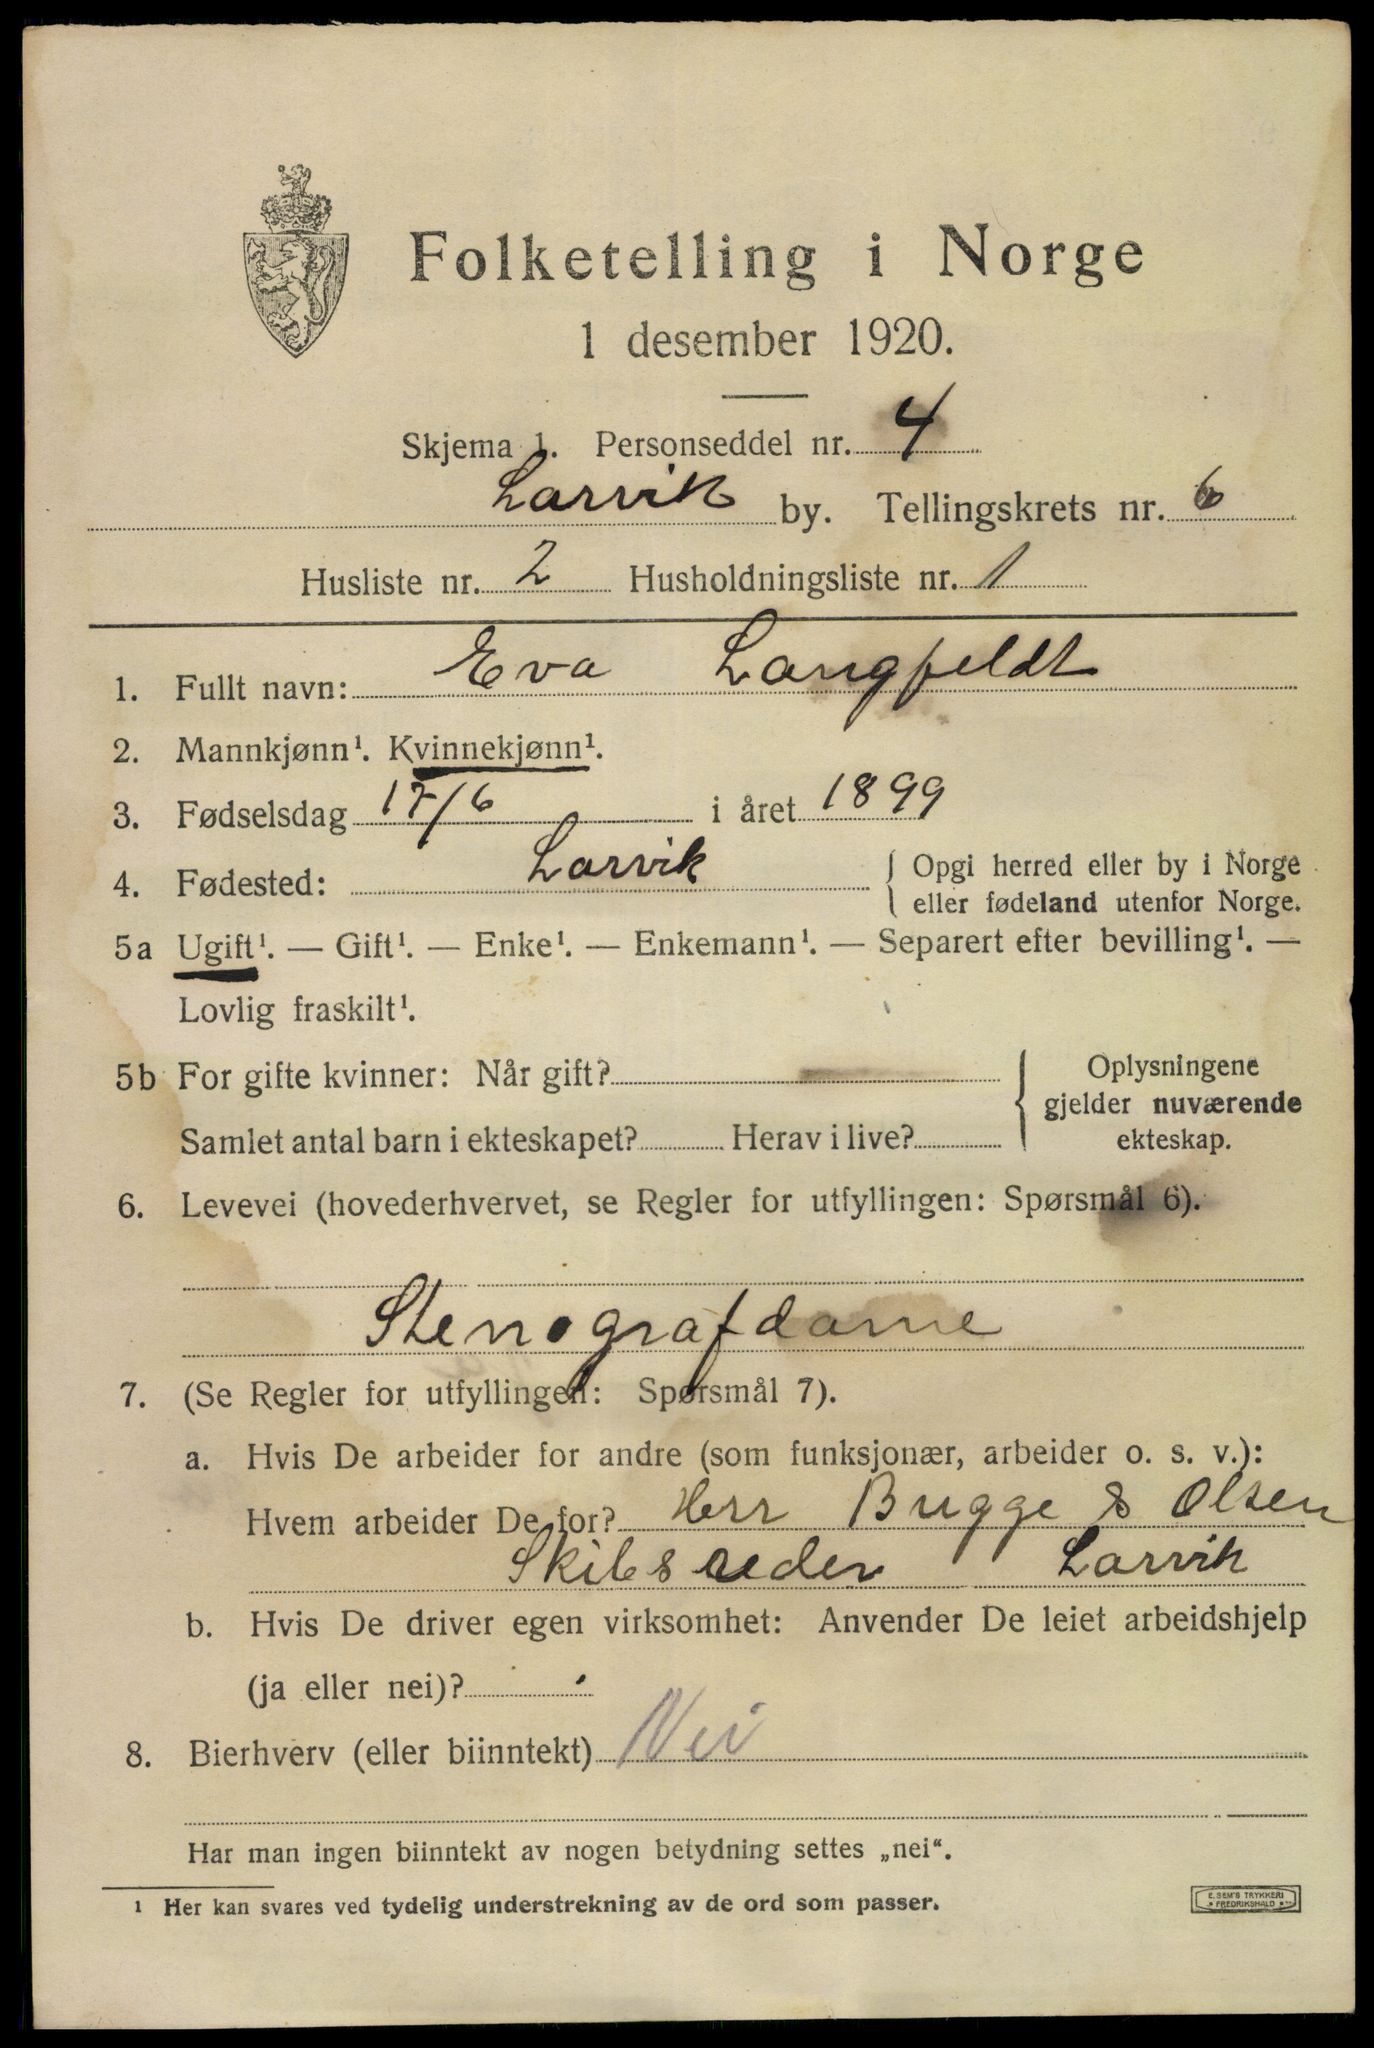 Folketelling i Norge
1 desember 1920.
Skjema 1. Personseddel nr. 4
Larvik by. Tellingskrets nr. 6
Husliste nr. 2 Husholdningsliste nr. 1
1. Fullt navn: Eva Langfeldt
2. Mannkjønn¹. Kvinnekjønn¹.
3. Fødselsdag 17/6 i året 1899
4. Fødested: Larvik { Opgi herred eller by i Norge
eller fødeland utenfor Norge.
5a Ugift¹. — Gift¹. — Enke¹. — Enkemann¹. — Separert efter bevilling¹. —
Lovlig fraskilt¹.
5b For gifte kvinner: Når gift?
Samlet antal barn i ekteskapet? Herav i live?
{ Oplysningene
gjelder nuværende
ekteskap.
6. Levevei (hovederhvervet, se Regler for utfyllingen: Spørsmål 6).
Stenografdame
7. (Se Regler for utfyllingen: Spørsmål 7).
a. Hvis De arbeider for andre (som funksjonær, arbeider o. s. v.):
Hvem arbeider De for? Herr Bugge & Olsen
Skibsreder Larvik
b. Hvis De driver egen virksomhet: Anvender De leiet arbeidshjelp
(ja eller nei)?
8. Bierhverv (eller biinntekt) Nei
Har man ingen biinntekt av nogen betydning settes „nei“.
¹ Her kan svares ved tydelig understrekning av de ord som passer.
E. SEM'S TRYKKERI
FREDRIKSHALD